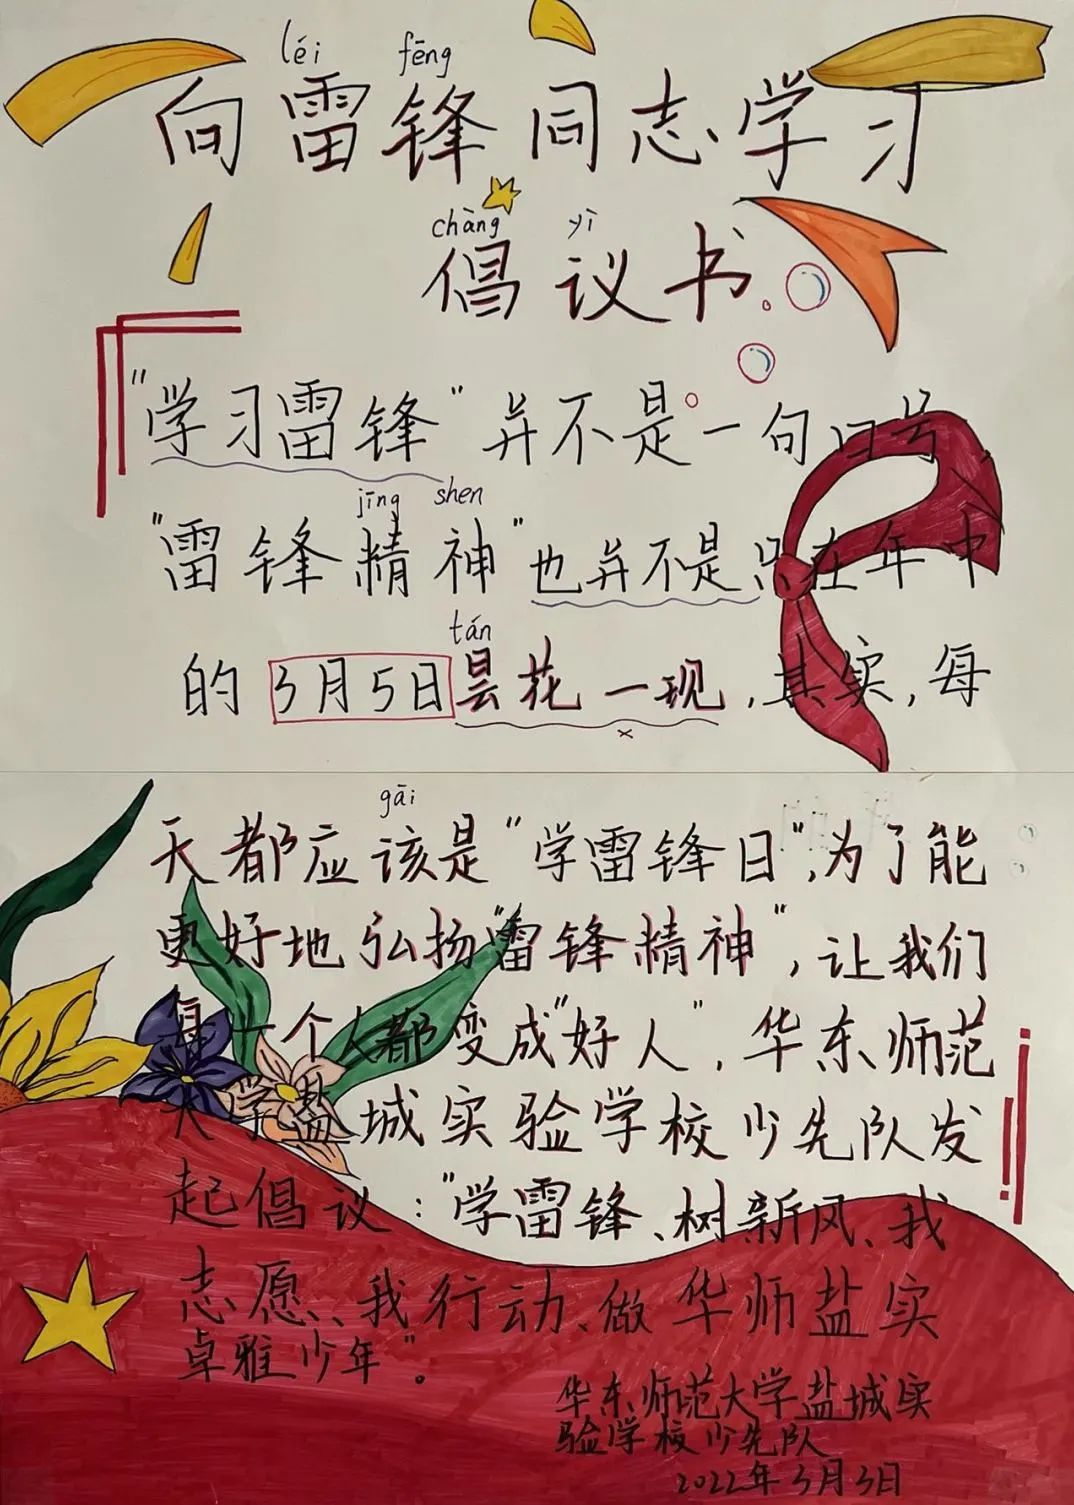 léi fēng
向雷锋同志学习
chàng yì
倡议书
"学习雷锋"并不是一句口号,
jīng shen
"雷锋精神"也并不是只在年中
tán
的3月5日昙花一现,其实,每
gāi
天都应该是"学雷锋日",为了能
更好地弘扬"雷锋精神",让我们
每一个人都变成"好人",华东师范
大学盐城实验学校少先队发
起倡议:"学雷锋、树新风、我
志愿、我行动、做华师盐实
卓雅少年"。
华东师范大学盐城实
验学校少先队
2022年3月3日